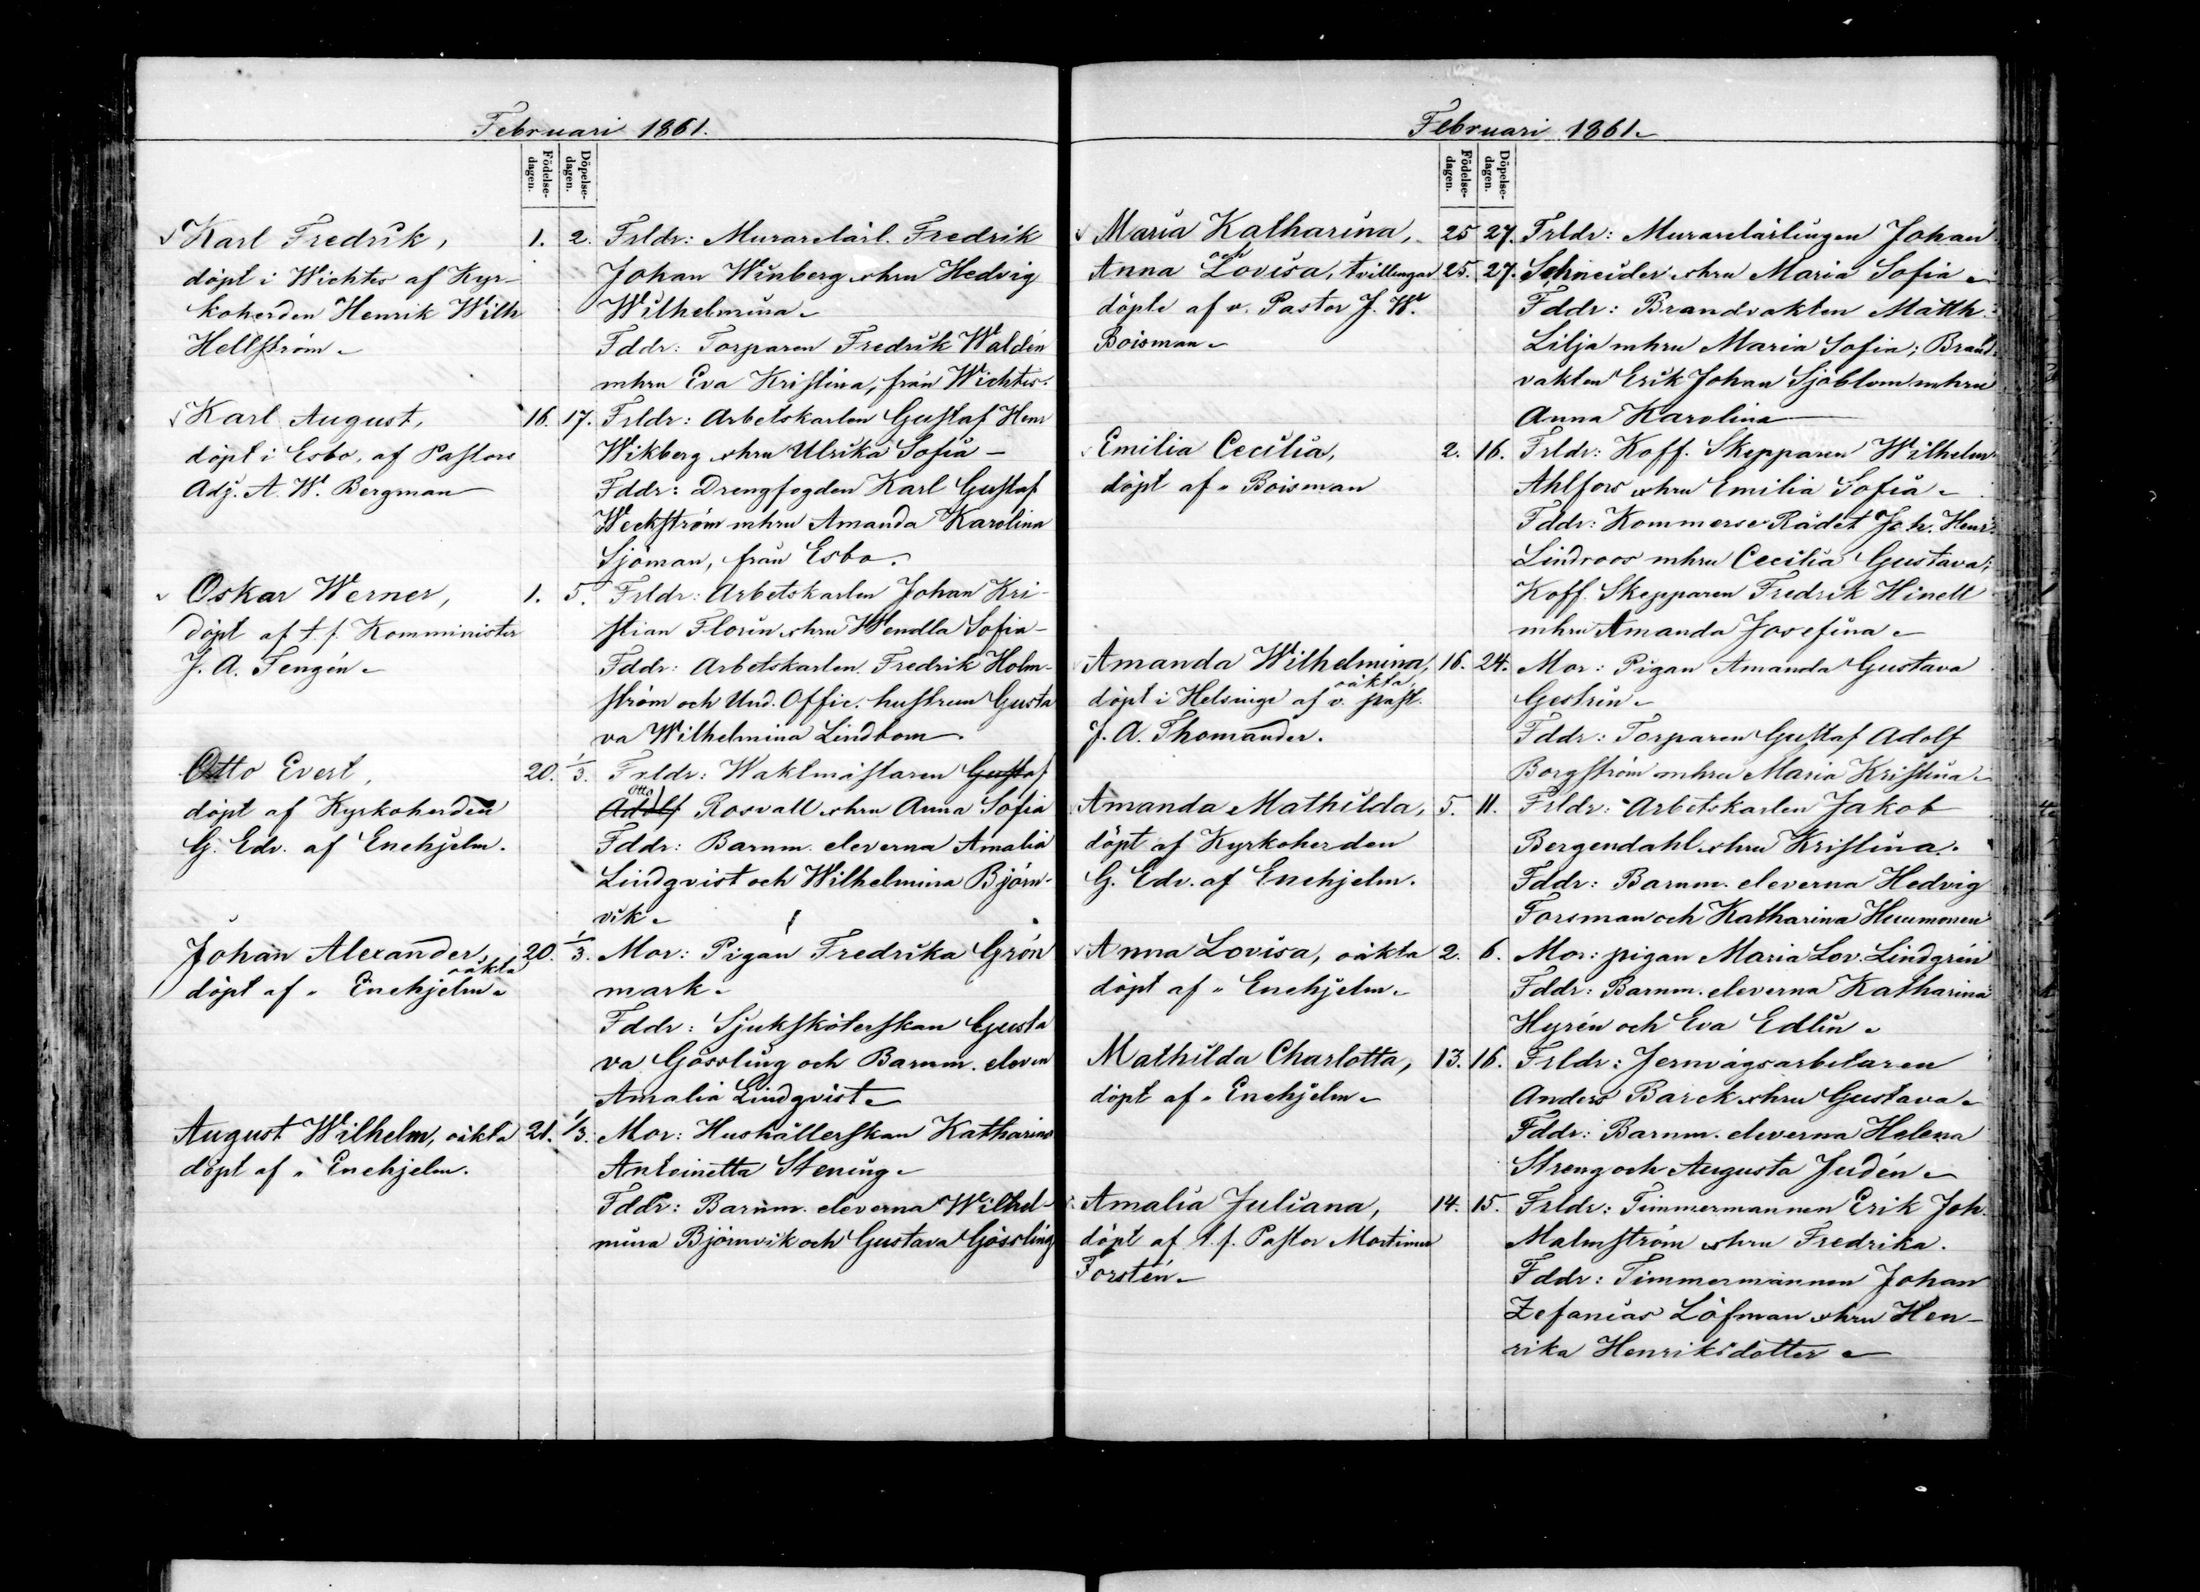 Februari 1861.
Födelse-
dagen.
Döpelse-
dagen.
Karl Fredrik,
döpt i Wichtis af Kyr-
koherden Henrik Wilh
Hellström
1. 2. Frldr: Murarelärl. Fredrik
Johan Winberg o hru Hedvig
Wilhelmina
Fddr: Torparen Fredrik Waldén
mhru Eva Kristina, från Wichtis.
Karl August,
döpt i Esbo, af Pastors
Adj. A. W. Bergman
16. 17. Frldr: Arbetskarlen Gustaf Henr
Wikberg o hru Ulrika Sofia
Fddr: Drengfogden Karl Gustaf
Weckström mhru Amanda Karolina
Sjöman, från Esbo.
Oskar Werner,
döpt af t. f. Komminister
J. A. Tengén
1. 5. Frldr: Arbetskarlen Johan Kri-
stian Florin o hru Wendla Sofia
Fddr: Arbetskarlen Fredrik Holm-
ström och Und. Offic. hustrun Gusta
va Wilhelmina Lindbom
Otto Evert,
döpt af Kyrkoherden
G. Edv. af Enehjelm.
20. 1/3. Frldr: Waktmästaren Gustaf
Otto
Adolf Rosvall o hru Anna Sofia
Fddr: Barnm. eleverna Amalia
Lindqvist och Wilhelmina Björn-
vik
Johan Alexander,
oäkta
döpt af " Enehjelm
20. 1/3. Mor: Pigan Fredrika Grön
mark
Fddr: Sjuksköterskan Gusta
va Gössling och Barnm. eleven
Amalia Lindqvist
August Wilhelm, oäkta
döpt af " Enehjelm.
21. 1/3. Mor: Hushållerskan Katharina
Antoinetta Stening
Fddr: Barnm. eleverna Wilhel-
mina Björnvik och Gustava Gössling
Februari 1861
Födelse-
dagen.
Döpelse-
dagen.
Maria Katharina,
och
Anna Lovisa, tvillingar
döpte af v. Pastor J. W.
Boisman
25 27. Frldr: Murarelärlingen Johan
25. 27. Schneider o hru Maria Sofia
Fddr: Brandvakten Matth.
Lilja mhru Maria Sofia; Brand-
vakten Erik Johan Sjöblom mhru
Anna Karolina
Emilia Cecilia,
döpt af " Boisman
2. 16. Frldr: Koff. Skepparen Wilhelm
Ahlfors o hru Emilia Sofia
Fddr: Kommerse Rådet Joh. Henr.
Lindroos mhru Cecilia Gustava;
Koff. Skepparen Fredrik Hinell
mhru Amanda Josefina
Amanda Wilhelmina,
oäkta,
döpt i Helsinge af v. past.
J. A. Thomander.
16. 24. Mor: Pigan Amanda Gustava
Gestrin
Fddr: Torparen Gustaf Adolf
Borgström mhru Maria Kristina
Amanda Mathilda,
döpt af Kyrkoherden
G. Edv. af Enehjelm.
5. 11. Frldr: Arbetskarlen Jakob
Bergendahl o hru Kristina.
Fddr: Barnm. eleverna Hedvig
Forsman och Katharina Huumonen
Anna Lovisa, oäkta
döpt af " Enehjelm
2. 6. Mor: pigan Maria Lov. Lindgrén
Fddr: Barnm. eleverna Katharina
Hyrén och Eva Edlin
Mathilda Charlotta,
döpt af " Enehjelm
13. 16. Frldr: Jernvägsarbetaren
Anders Barck o hru Gustava
Fddr: Barnm. eleverna Helena
Streng och Augusta Judén
Amalia Juliana,
döpt af t. f. Pastor Mortimer
Forstén
14. 15. Frldr: Timmermannen Erik Joh.
Malmström o hru Fredrika.
Fddr: Timmermannen Johan
Zefanias Löfman o hru Hen-
rika Henriksdotter